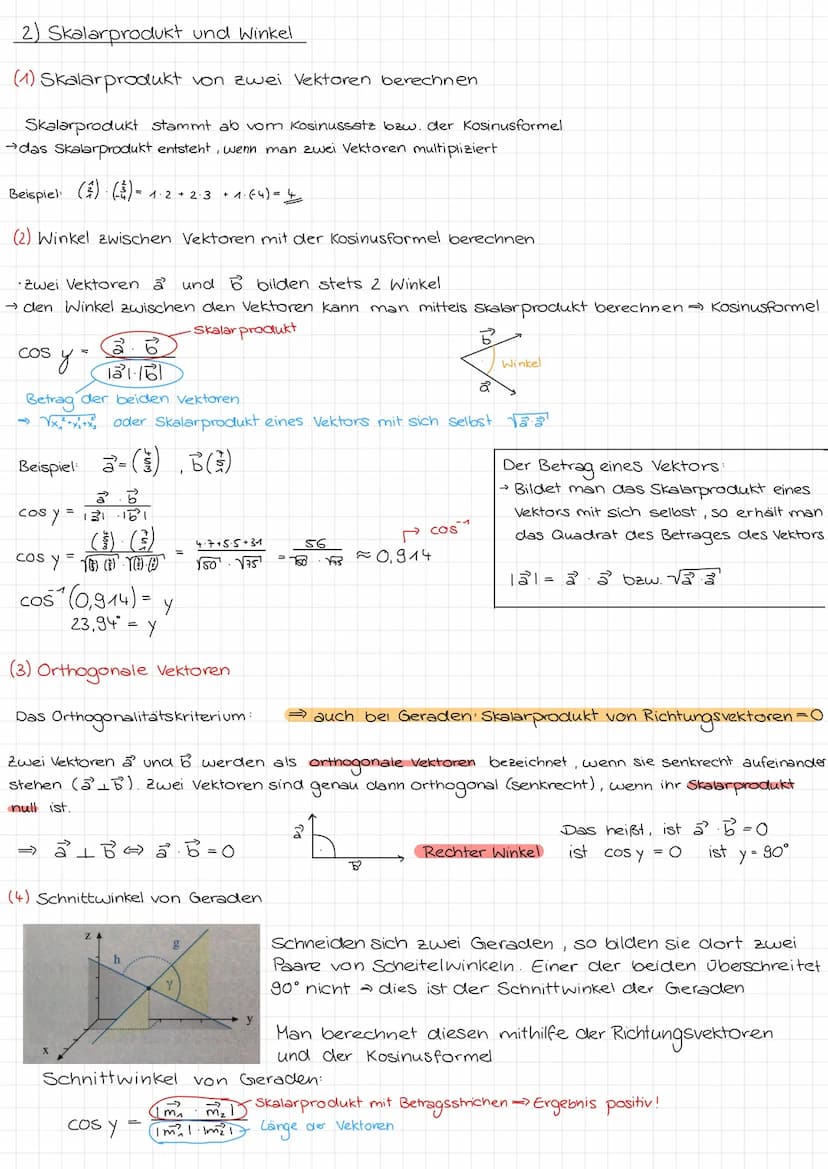 2) Skalarprodukt und Winkel
(1) Skalarprodukt von zwei Vektoren berechnen
Skalarprodukt stammt ab vom Kosinussatz bzw. der Kosinusformel
→ das Skalarprodukt entsteht, wenn man zwei Vektoren multipliziert
Beispiel: (1 2 1) · (2 3 -4) = 1·2 + 2·3 + 1·(-4) = 4
(2) Winkel zwischen Vektoren mit der Kosinusformel berechnen
· zwei Vektoren a⃗ und b⃗ bilden stets 2 Winkel
→ den Winkel zwischen den Vektoren kann man mittels Skalarprodukt berechnen ⇒ Kosinusformel
Skalarprodukt
cos γ = a⃗ · b⃗ / |a⃗|·|b⃗|
b⃗
Winkel
a⃗
Betrag der beiden Vektoren
→ oder Skalarprodukt eines Vektors mit sich selbst √a⃗·a⃗
Beispiel: a⃗ = (4 5 3) , b⃗ (7 5 1)
cos γ = a⃗ · b⃗ / |a⃗| · |b⃗|
cos γ = (4 5 3) · (7 5 1) / = 4·7+5·5+3·1 / √50 · √75 = 56 / √50 · √75 ≈ 0,914
↱ cos⁻¹
cos⁻¹(0,914) = γ
23,94° = γ
Der Betrag eines Vektors:
→ Bildet man das Skalarprodukt eines
Vektors mit sich selbst, so erhält man
das Quadrat des Betrages des Vektors
|a⃗| = a⃗ · a⃗ bzw. √a⃗·a⃗
(3) Orthogonale Vektoren
Das Orthogonalitätskriterium: ⇒ auch bei Geraden: Skalarprodukt von Richtungsvektoren = 0
Zwei Vektoren a⃗ und b⃗ werden als orthogonale Vektoren bezeichnet, wenn sie senkrecht aufeinander
stehen (a⃗ ⊥ b⃗). Zwei Vektoren sind genau dann orthogonal (senkrecht), wenn ihr Skalarprodukt
null ist.
⇒ a⃗ ⊥ b⃗ ⇔ a⃗ · b⃗ = 0
a⃗
b⃗
Rechter Winkel
Das heißt, ist a⃗ · b⃗ = 0
ist cos γ = 0 ist γ = 90°
(4) Schnittwinkel von Geraden
z
h
g
γ
y
x
Schneiden sich zwei Geraden, so bilden sie dort zwei
Paare von Scheitelwinkeln. Einer der beiden überschreitet
90° nicht → dies ist der Schnittwinkel der Geraden
Man berechnet diesen mithilfe der Richtungsvektoren
und der Kosinusformel
Schnittwinkel von Geraden:
cos γ = |m⃗₁ · m⃗₂| / |m⃗₁| · |m⃗₂|
Skalarprodukt mit Betragsstrichen ⇒ Ergebnis positiv!
Länge der Vektoren